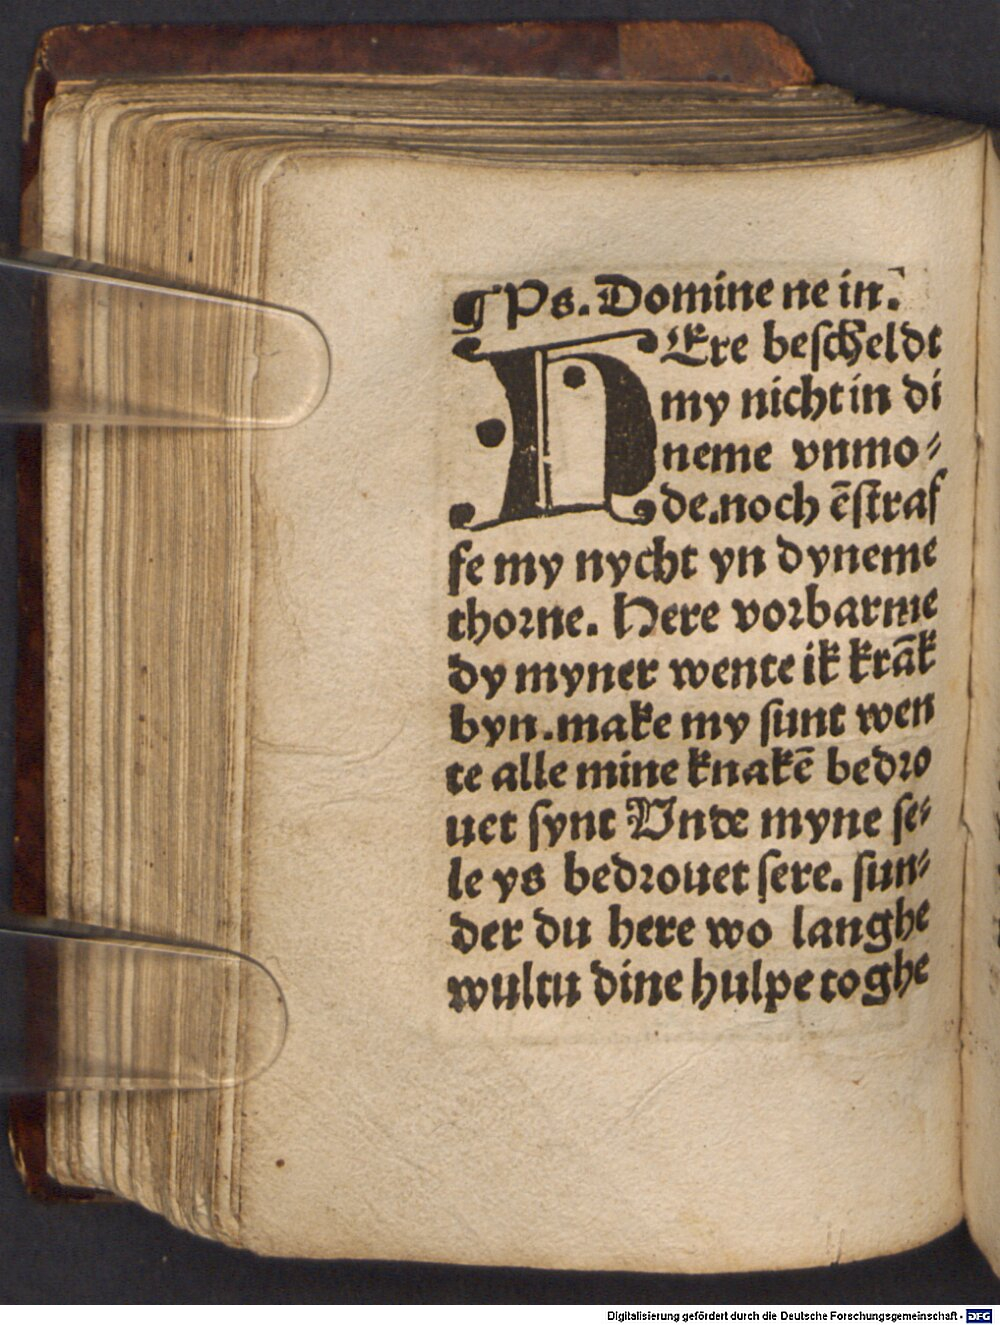 ¶ Ps. Domine ne in.
HEre bescheldt
my nicht in di
neme vnmo⸗
de.noch ēstraf
fe my nycht yn dyneme
thorne. Here vorbarme
dy myner wente ik krāk
byn.make my sunt wen
te alle mine knakē bedro
uet synt Vnde myne se⸗
le ys bedrouet sere. sun⸗
der du here wo langhe
wultu dine hulpe toghe
Digitalisierung gefördert durch die Deutsche Forschungsgemeinschaft - DFG